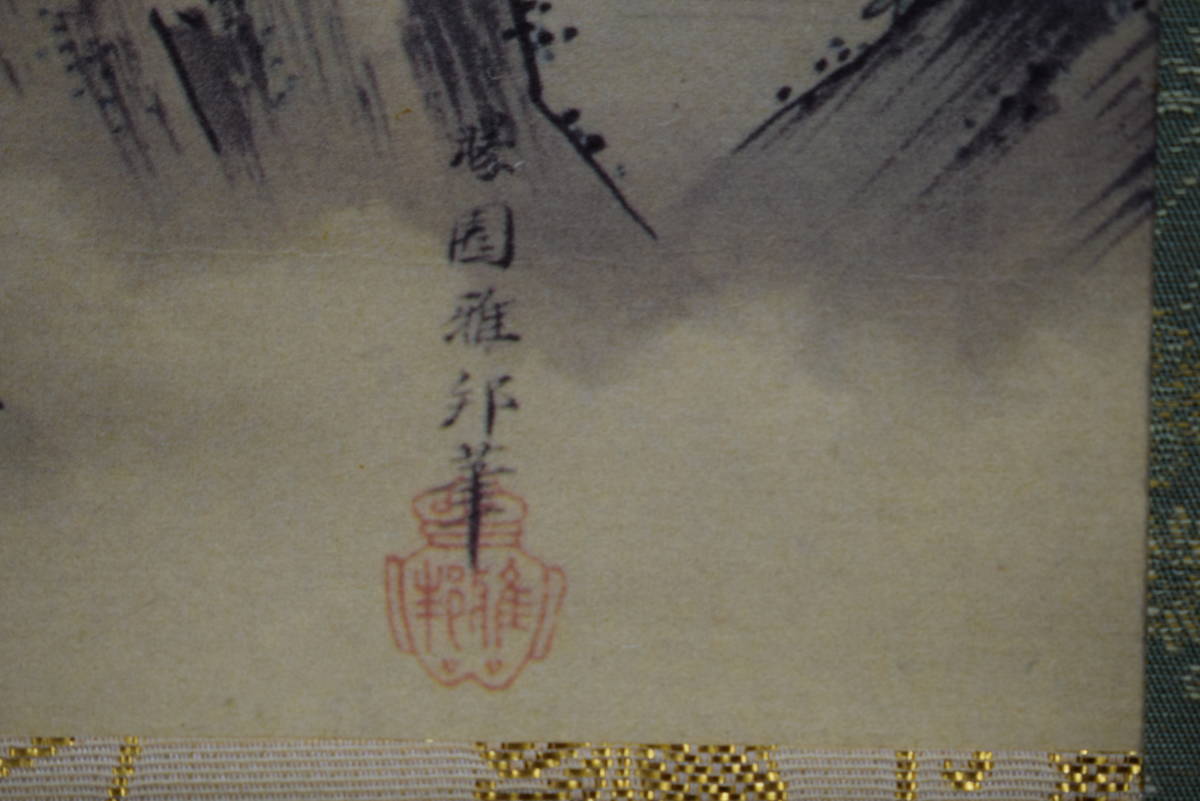 勝園雅邦筆
雅邦